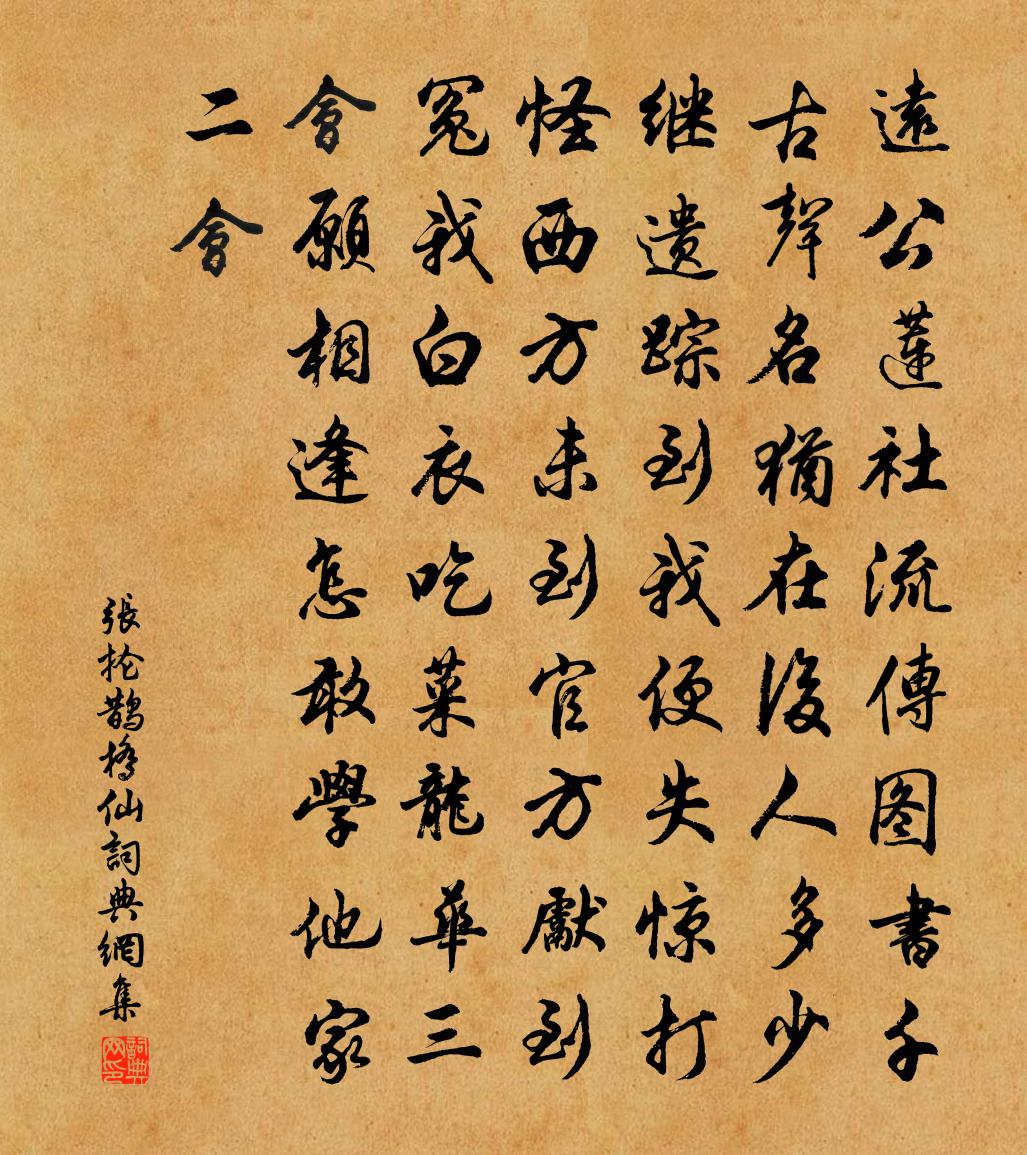 遠公蓮社流傳图書千
古聲名猶在後人多少
继遗踪到我便失惊打
怪西方未到官方獻到
冤我白衣吃菜龍華三
會願相逢怎敢學他家
二會
張抡鵲橋仙詞典網集
詞典网印